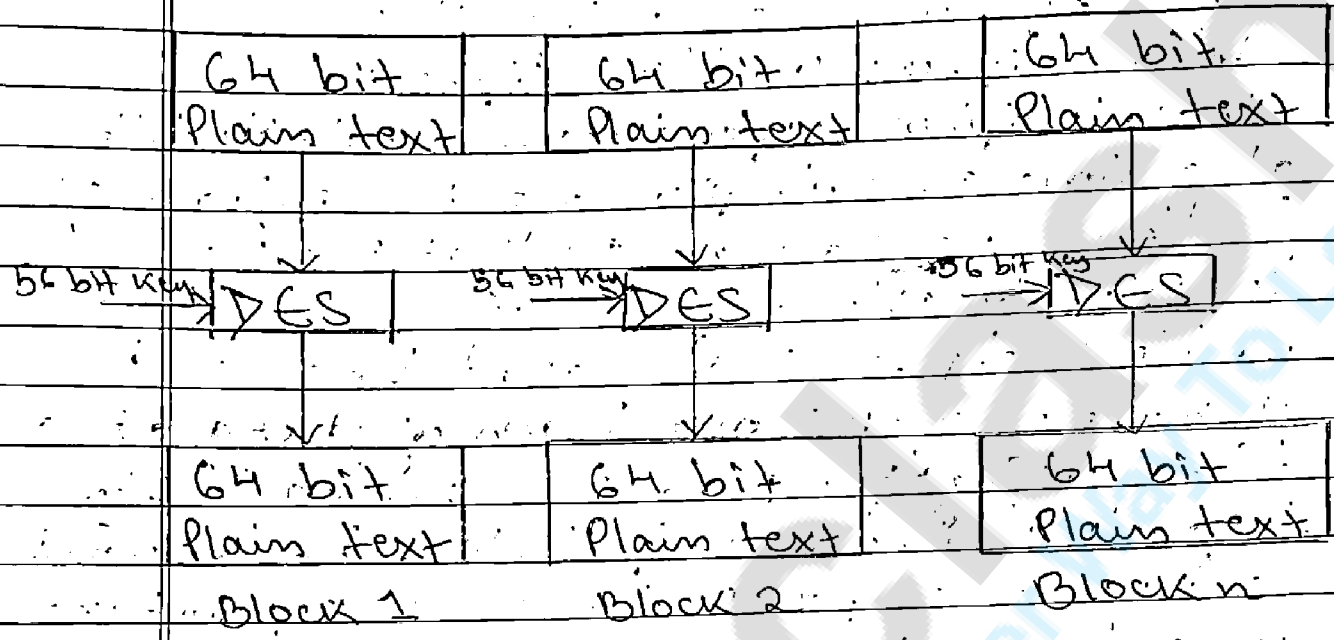 64 bit
Plain text
64 bit
Plain text
64 bit
Plain text
56 bit key
DES
56 bit key
DES
56 bit key
DES
64 bit
Plain text
Block 1
64 bit
Plain text
Block 2
64 bit
Plain text
Block n
clash
Way To L